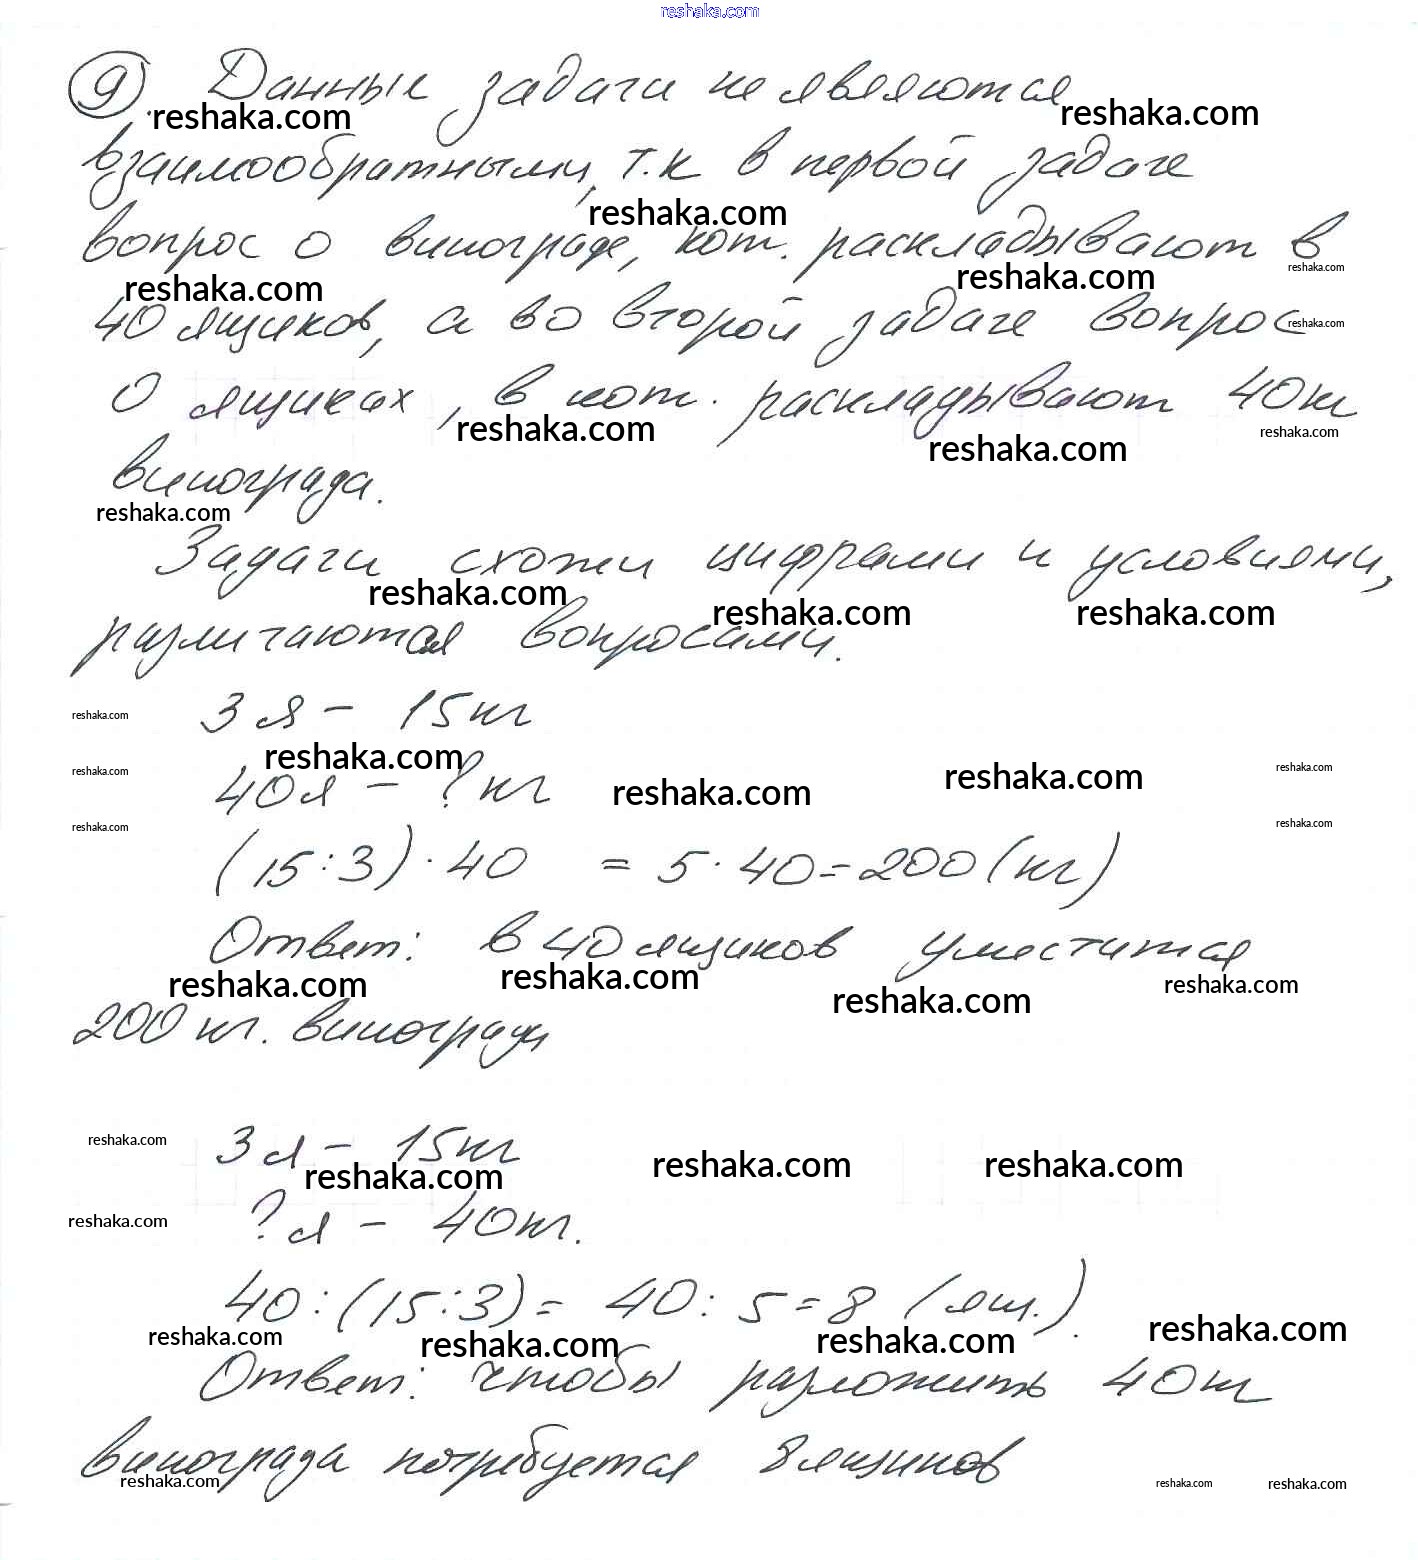 reshaka.com
9. Данные задачи не являются
reshaka.com reshaka.com
взаимообратными, т.к в первой задаче
reshaka.com
вопрос о винограде, кот. раскладывают в
reshaka.com reshaka.com reshaka.com
40 ящиков, а во второй задаче вопрос
reshaka.com
о ящиках, в кот. раскладывают 40кг
reshaka.com reshaka.com reshaka.com
винограда.
reshaka.com
Задачи схожи цифрами и условиями,
reshaka.com reshaka.com reshaka.com
различаются вопросами.
reshaka.com 3 я - 15кг
reshaka.com
reshaka.com 40я - ? кг reshaka.com reshaka.com reshaka.com
reshaka.com reshaka.com
(15:3)·40 = 5·40=200(кг)
Ответ: в 40 ящиков уместится
reshaka.com reshaka.com reshaka.com reshaka.com
200 кг. винограда
reshaka.com 3 я - 15кг
reshaka.com reshaka.com reshaka.com
reshaka.com ? я - 40кг.
40:(15:3)= 40:5=8 (ящ.).
reshaka.com reshaka.com reshaka.com reshaka.com
Ответ: чтобы разложить 40кг
винограда потребуется 8 ящиков
reshaka.com reshaka.com reshaka.com